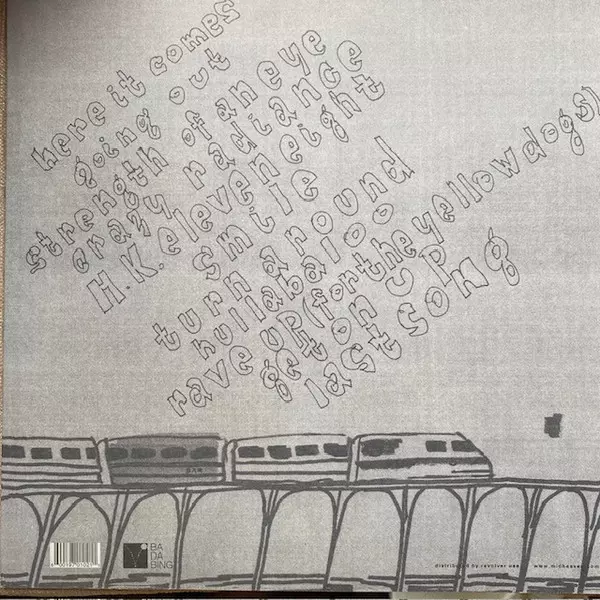 here it comes
going out
strength of an eye
crazy radiance
H.K. eleven eight
smile
turn around
hullabaloo
rave up (for the yellow dogs)
get on up
last song
BAR
BA
DA
BING
distributed by revolver usa